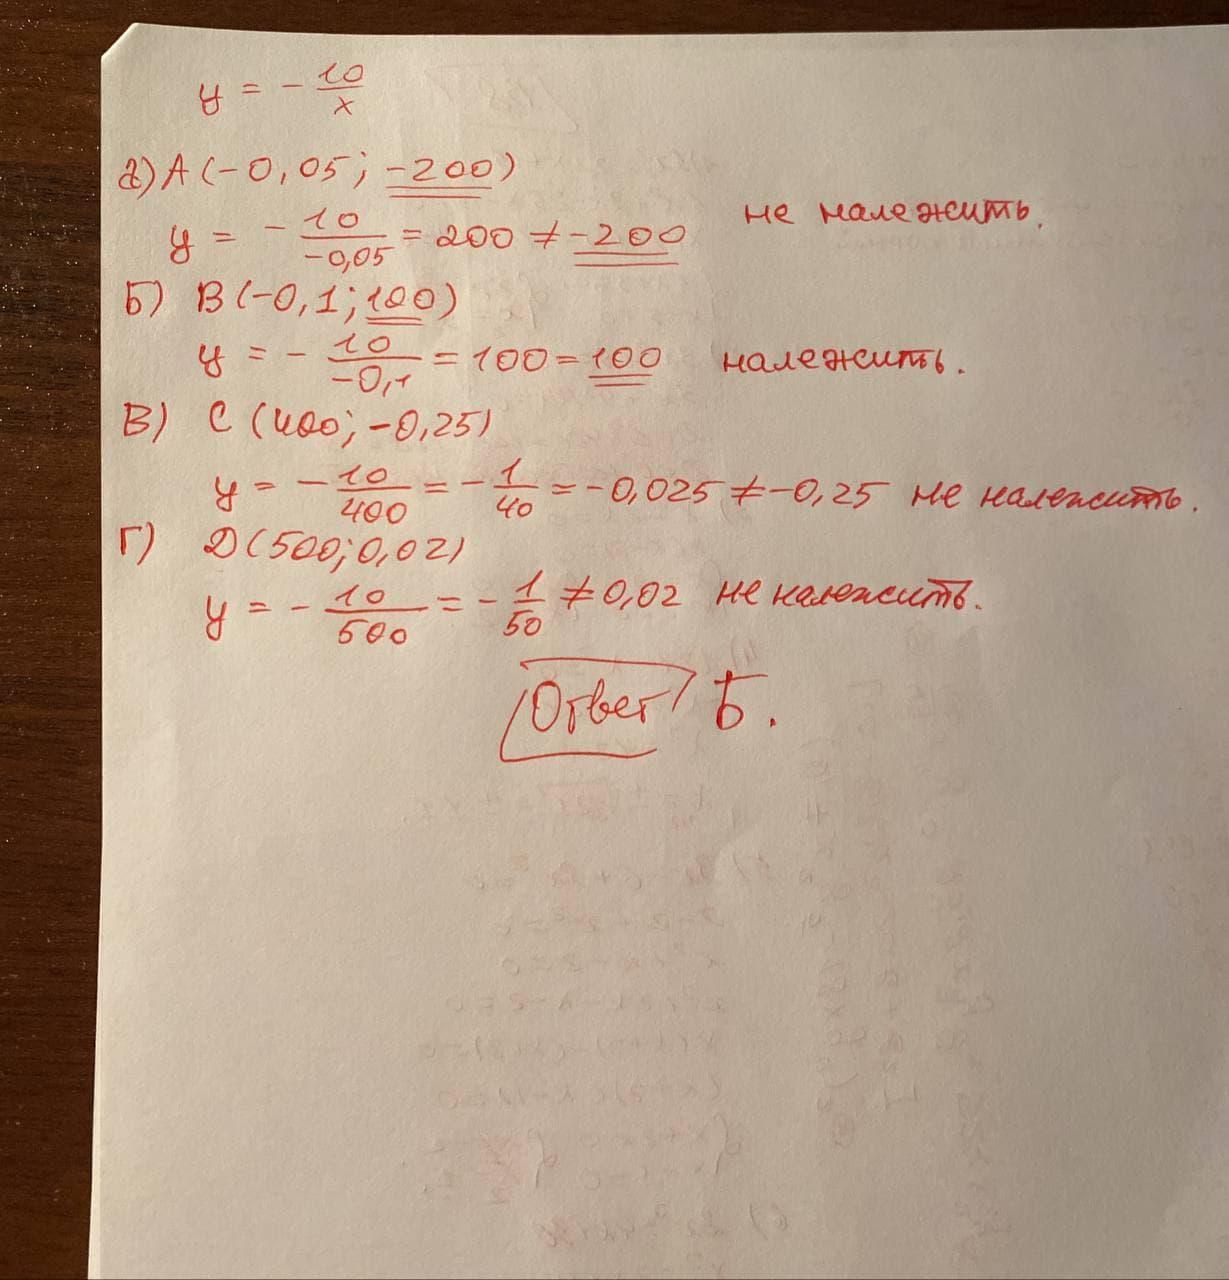 y = - 10/x
а) A (-0,05; -200)
y = - 10/-0,05 = 200 ≠ -200 не належить.
Б) B (-0,1; 100)
y = - 10/-0,1 = 100 = 100 належить.
В) C (400; -0,25)
y = - 10/400 = - 1/40 = -0,025 ≠ -0,25 не належить.
Г) D (500; 0,02)
y = - 10/500 = - 1/50 ≠ 0,02 не належить.
Ответ Б.